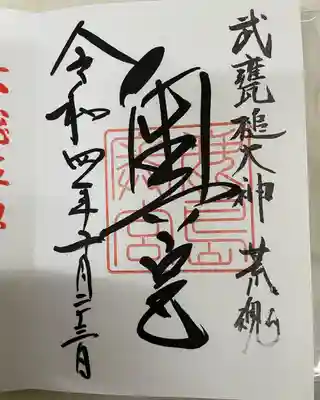 武甕槌大神 荒魂
奥宮
令和四年十一月二十三日